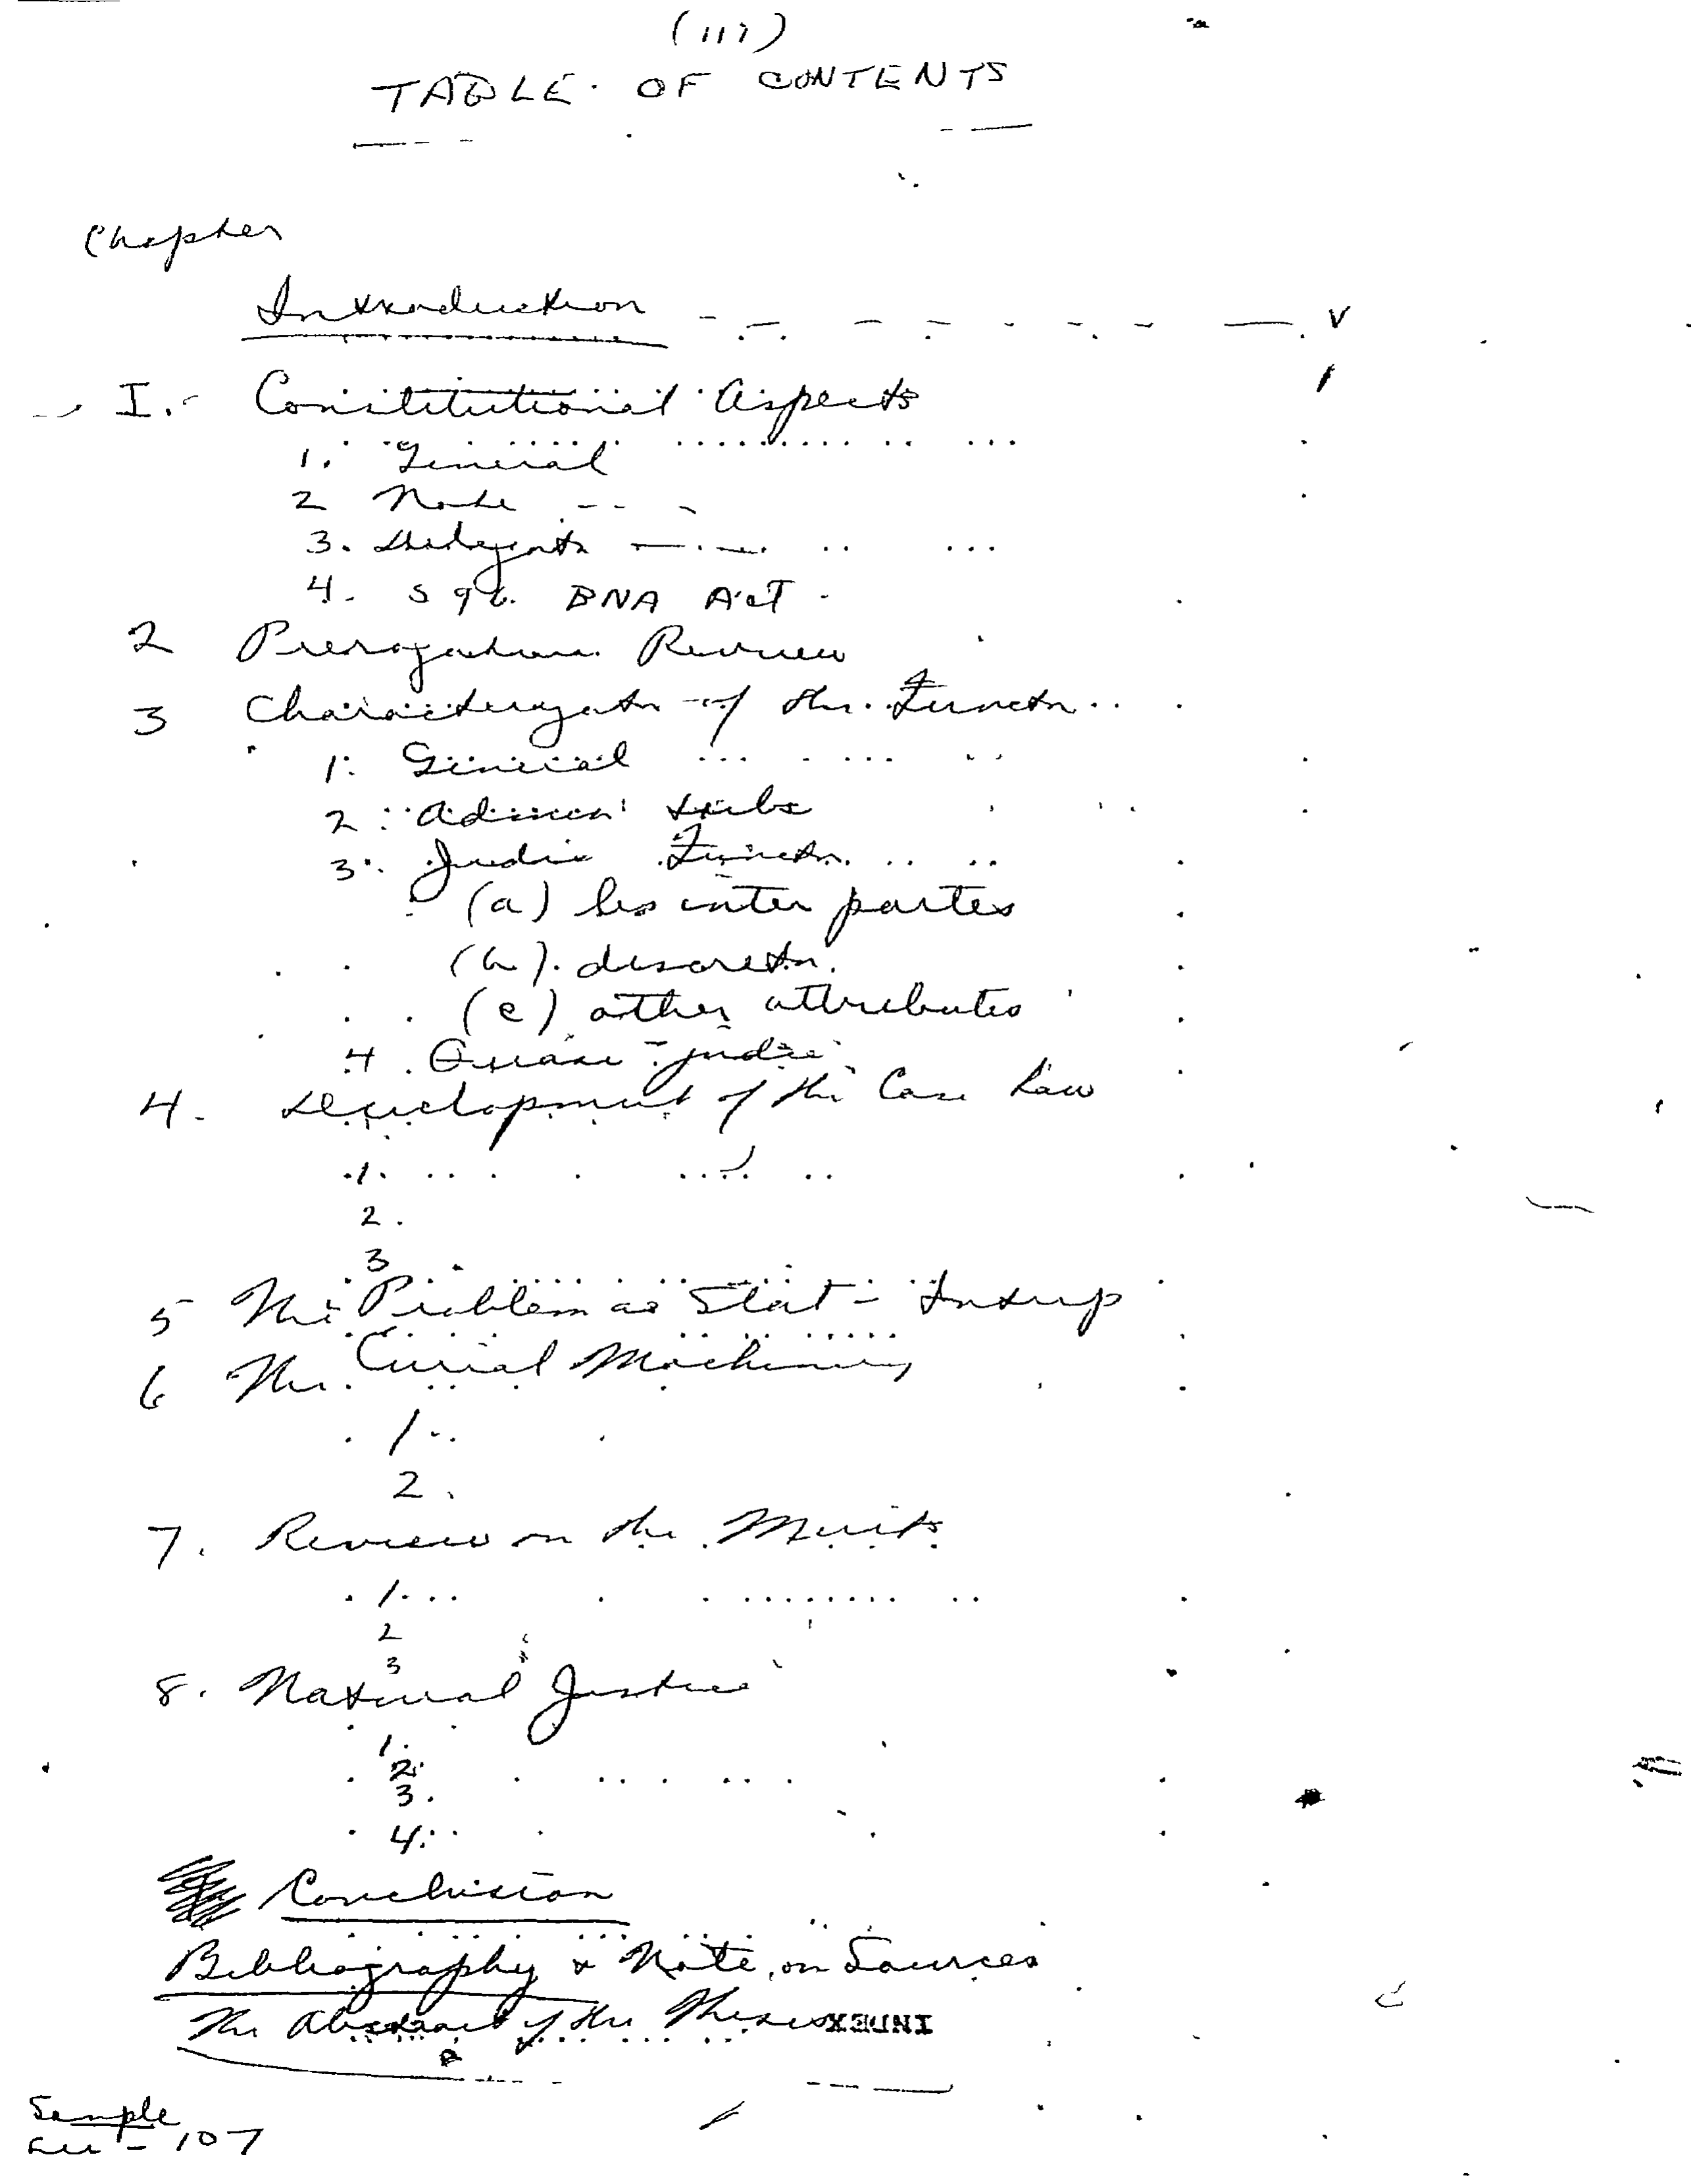 (iii)
TABLE OF CONTENTS
Chapter
Introduction - - - - - - - - v
I. Constitutional Aspects
1. General
2 Nature
3. Delegatn
4. S 96 BNA Act
2 Prerogative Review
3 Characterizatn of the Functn
1. General
2. Admin' tribs
3. Judic Functn.
(a) lis inter partes
(b) discretn.
(c) other attributes
4. Quasi-judic
4. Development of the Case Law
1.
2.
3
5 The Problem as Stat- Interp
6 The Curial Machinery
1.
2.
7. Review on the Merits
1.
2
3
8. Natural Justice
1.
2.
3.
4.
Conclusion
Bibliography & Note on Sources
The Abstract of the Thesis INDEX
Sample
107